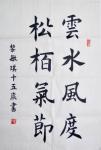 雲水風度
松柏氣節
黎敏琪十五歲書